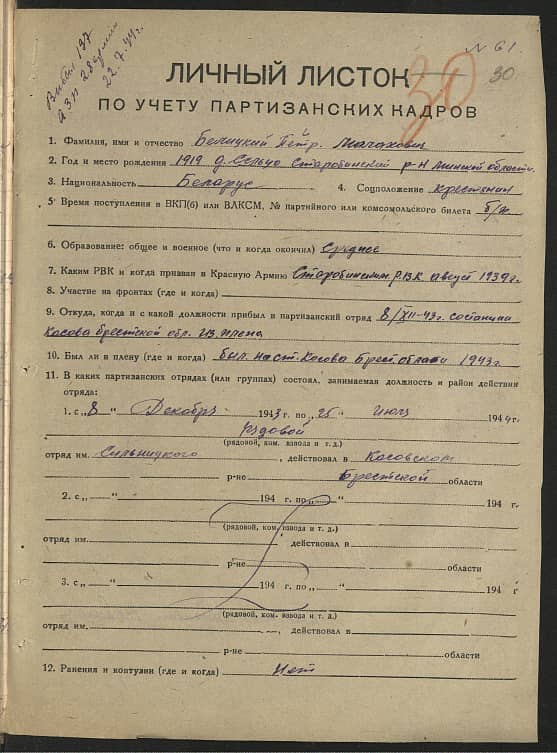 № 61.
30
30
22.7.44г.
ЛИЧНЫЙ ЛИСТОК
ПО УЧЕТУ ПАРТИЗАНСКИХ КАДРОВ
1. Фамилия, имя и отчество Пётр
2. Год и место рождения 1919 д. Сельцо Старобинский р-н Минской области.
3. Национальность Беларус 4. Соцположение крестянин
5. Время поступления в ВКП(б) или ВЛКСМ, № партийного или комсомольского билета б/п
6. Образование: общее и военное (что и когда окончил) Среднее
7. Каким РВК и когда призван в Красную Армию Старобинским Р.В.К. август 1939 г.
8. Участие на фронтах (где и когда)
9. Откуда, когда и с какой должности прибыл в партизанский отряд 8/XII-43г. со станции
Косова брестской обл. из плена
10. Был ли в плену (где и когда) был на ст. Косова Брест. области 1943 г.
11. В каких партизанских отрядах (или группах) состоял, занимаемая должность и район действия
отряда:
1. с „8" Декабря 1943 г. по „25" июля 1944 г.
рядовой
(рядовой, ком. взвода и т. д.)
отряд им. Сильницкого, действовал в Косовском
р-не Брестской области
2. с „ " 194 г. по „ " 194 г.
(рядовой, ком. взвода и т. д.)
отряд им. действовал в
р-не области
3. с „ " 194 г. по „ " 194 г
(рядовой, ком. взвода и т. д.)
отряд им. , действовал в
р-не области
12. Ранения и контузии (где и когда) Нет